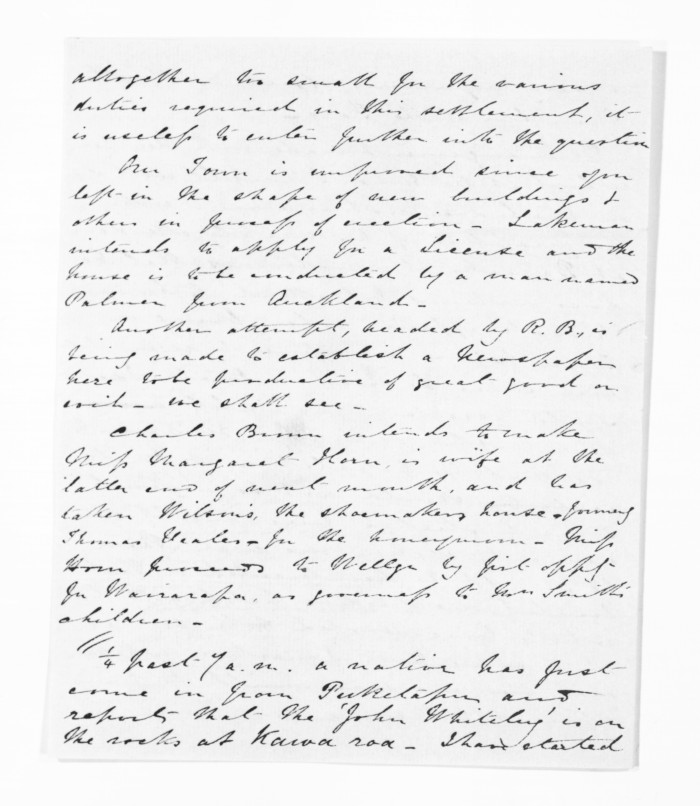 altogether too small for the various
duties required in this settlement, it
is useless to enter further into the question
Our Town is improved since you
left in the shape of new buildings &
others in process of erection - Lakeman
intends to apply for a License and the
house is to be conducted by a man named
Palmer from Auckland -
Another attempt, headed by R. B., is
being made to establish a Newspaper
here to be productive of great good or
evil - we shall see -
Charles Brown intends to make
Miss Margaret Horn, is wife at the
latter end of next month, and has
taken Wilson's, the shoemakers house - formerly
Thomas - for the honeymoon - Miss
Horn proceeds to Wellgn by first oppy
for Wairarapa, as governess to Mrs Smith's
children -
1/4 past 7 a.m. a native has just
come in from Puketapu and
reports that the 'John Whiteley' is on
the rocks at Kawa roa - I have started